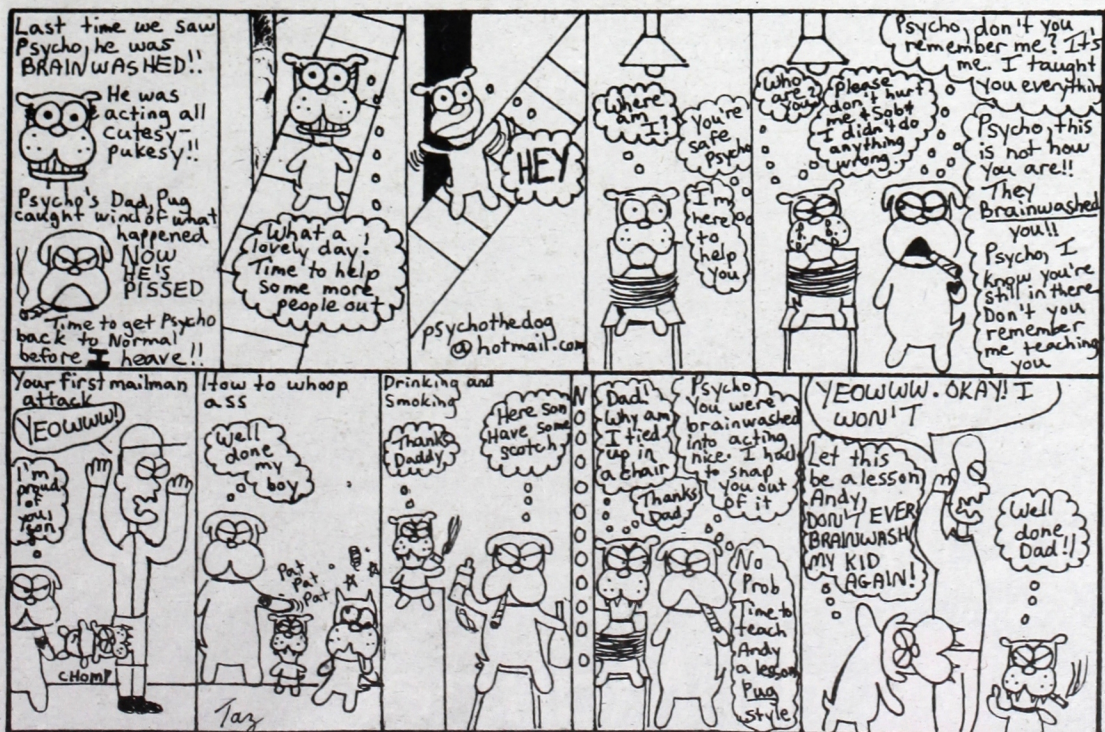 Last time we saw
Psycho, he was
BRAINWASHED!!
He was
acting all
cutesy-
pukesy!!
Psycho's Dad, Pug
caught wind of what
happened
NOW
HE'S
PISSED
Time to get Psycho
back to Normal
before I heave!!
What a
lovely day!
Time to help
some more
people out
HEY
psychothedog
@hotmail.com
Where
am
I?
You're
safe
Psycho
I'm
here
to
help
you
Who
are
you?
Please
don't hurt
me *Sob*
I didn't do
anything
wrong
Psycho, don't you
remember me? It's
me. I taught
you everythin
Psycho, this
is not how
you are!!
They
Brainwashed
you!!
Psycho, I
know you're
still in there
Don't you
remember
me teaching
you
Your first mailman
attack
YEOWWW!
I'm
proud
of you
son
CHOMP
How to whoop
ass
Well
done
my
boy
Pat
Pat
Pat
Taz
Drinking and
Smoking
Thanks
Daddy
Here son
Have some
scotch
NOOOOOOOOOOO
Dad!
Why am
I tied
up in
a chair
Psycho,
You were
brainwashed
into acting
nice. I had
to snap
you out
of it
Thanks
Dad
No
Prob
Time to
teach
Andy
a lesson
Pug
style
YEOWWW. OKAY! I
WON'T
Let this
be a lesson
Andy,
DON'T EVER
BRAINWASH
MY KID
AGAIN!
Well
done
Dad!!